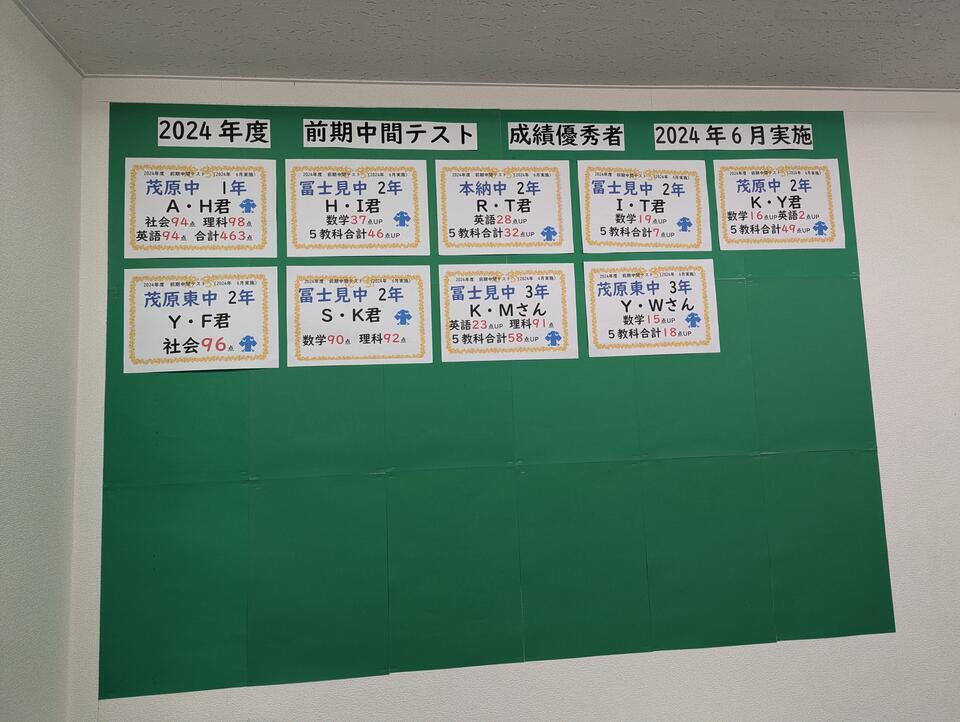 2024年度 前期中間テスト 成績優秀者 2024年6月実施
2024年度 前期中間テスト(2024年 6月実施)
茂原中 1年
A・H君
社会94点 理科98点
英語94点 合計463点
2024年度 前期中間テスト(2024年 6月実施)
冨士見中 2年
H・I君
数学37点UP
5教科合計46点UP
2024年度 前期中間テスト(2024年 6月実施)
本納中 2年
R・T君
英語28点UP
5教科合計32点UP
2024年度 前期中間テスト(2024年 6月実施)
冨士見中 2年
I・T君
数学19点UP
5教科合計7点UP
2024年度 前期中間テスト(2024年 6月実施)
茂原中 2年
K・Y君
数学16点UP英語2点UP
5教科合計49点UP
2024年度 前期中間テスト(2024年 6月実施)
茂原東中 2年
Y・F君
社会96点
2024年度 前期中間テスト(2024年 6月実施)
冨士見中 2年
S・K君
数学90点 理科92点
2024年度 前期中間テスト(2024年 6月実施)
冨士見中 3年
K・Mさん
英語23点UP 理科91点
5教科合計58点UP
2024年度 前期中間テスト(2024年 6月実施)
茂原東中 3年
Y・Wさん
数学15点UP
5教科合計18点UP